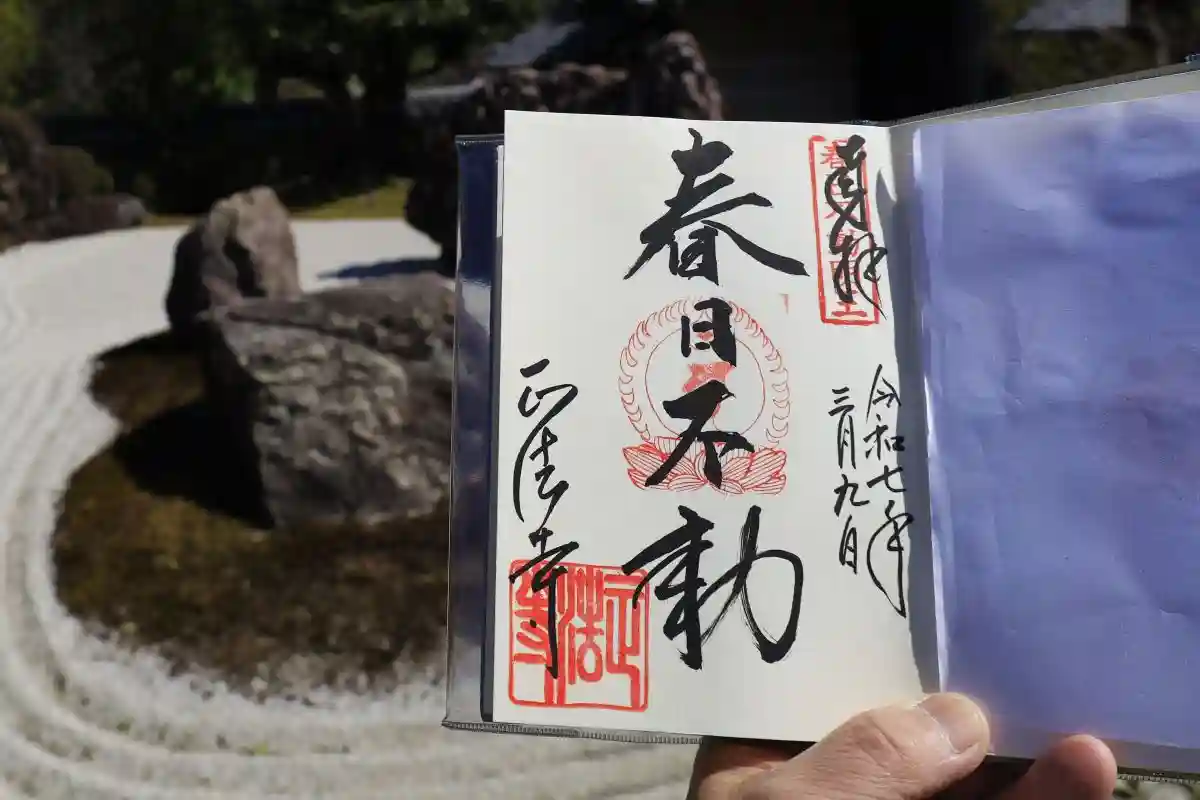 奉拝
令和七年
三月九日
春日不動
正法寺
正法寺